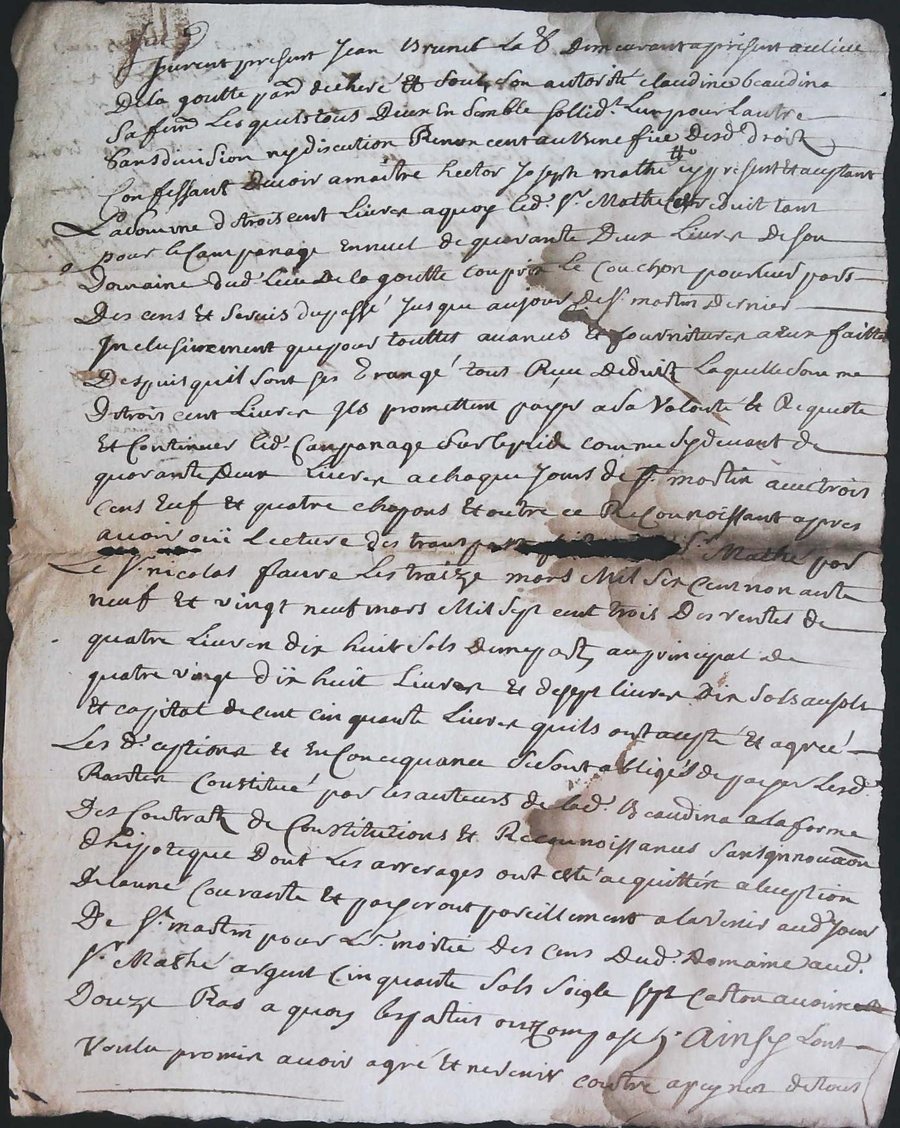 furent present Jean Brunel la b. demeurant a present au lieu
De la goutte et soubs son autorité claudine beaudina
Sa fem lesquels tous Deux En Semble sollid.t Lun pour Lautre
Sans division ny discution Renoncent au benefice Desd. droit
Confessant devoir a maitre hector Joseph mathé icy present Et aceptant
La somme d trois cent Livres a quoy led. Sr. Mathé reduit tant
pour le Campanage Ennuel de quarante Deux Livres de son
Domaine dud. Lieu de la goutte compris le Couchon pour leur part
Des cens Et servis du passé Jusque au jour de St. martin dernier
Inclusivement que pour touttes avances Et fournitures a Eux faittes
Despuis quil sont ses Grangé tous Reçu Deduit Laquelle Somme
D trois cent Livres Ils promettent payer a Sa Volonté Et Requeste
Et Continuer led. Campanage Sur le pied comme Cydevant de
quarante Deux Livres a chaque Jours de St. martin avec trois
Cens Euf Et quatre chapons Et outre ce Reconnoissant apres
avoir ouï Lecture Des Sr. Mathé par
Le Sr. nicolas faure Les traize mars Mil Six Cent nonante
neuf Et vingt neuf mars Mil Sept cent trois Des rentes de
quatre Livres dix huit Sols Dune part, au principal de
quatre vingt Dix huit Livres Et de sept livres Dix Sols au solt
Et capital de cent cinquante Livres quils ont acepté Et agreé
Les d. ceptions Et En Concequance Se sont obligés de payer Lesd.
Rantes Constitué par les auteurs de lad. Beaudina a la forme
Des Contrats de Constitutions Et Reconnoissances Sans Innovaõn
dhipoteque Dont Les arrerages ont esté acquittés a leception
De lanné Courante Et payeront pareillement a lavenir aud. Jour
De St. martin pour Lr. moitié Des cens Dud. Domaine aud.
Sr. Mathé argent Cinquante Sols Soigle Sept Carton avoine
Douze Ras a quoy les partis ont Composé, Ainsy Lont
Voulu promis avoir agré Et ne venir contre a peyne de tous